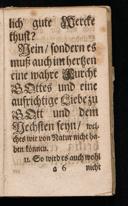 lich gute Wercke
thust?
Nein/ sondern es
muß auch im hertzen
eine wahre Furcht
GOttes und eine
aufrichtige Liebe zu
GOtt und dem
Nechsten seyn/ wel-
ches wir von Natur nicht ha-
ben können.
11. So wird es auch wohl
a 6 nicht